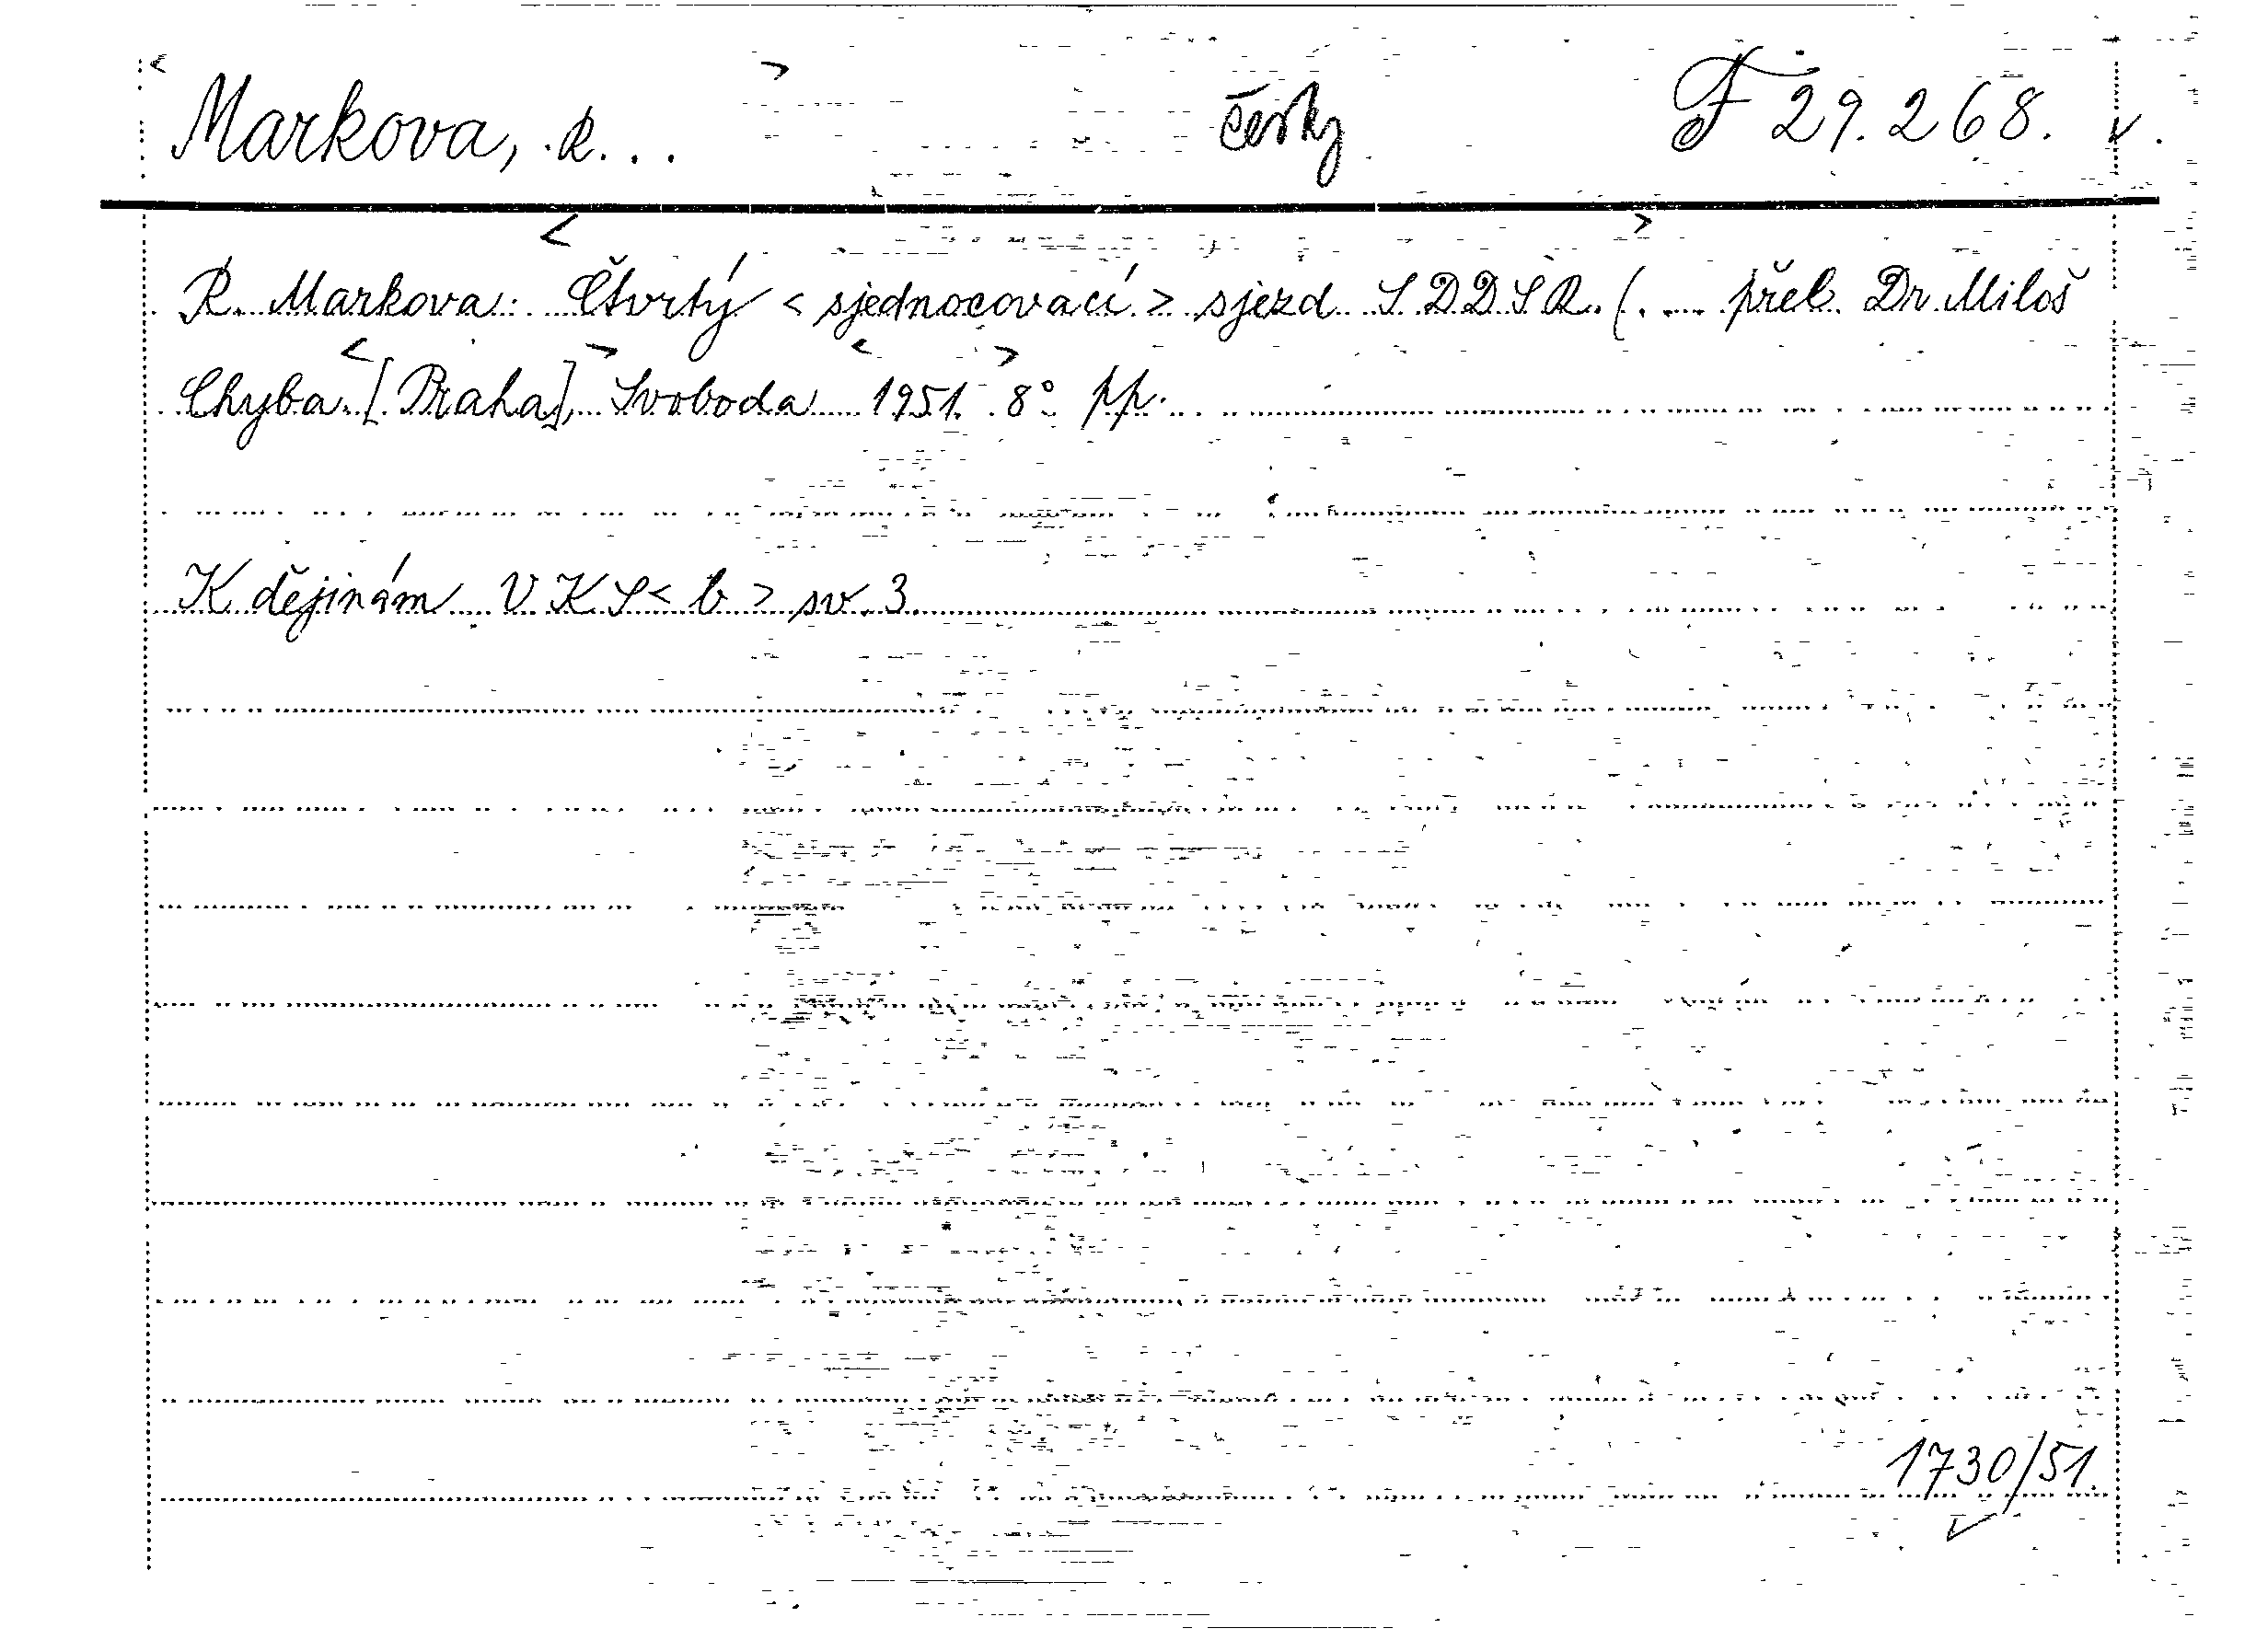 Markova, R... česky F 29.268. v.
R. Markova: Čtvrtý < sjednocovací > sjezd SDDSR. (.... přel. Dr. Miloš
Chyba. [Praha], Svoboda 1951. 8° pp.
K dějinám VKS < b > sv. 3.
1730/51.